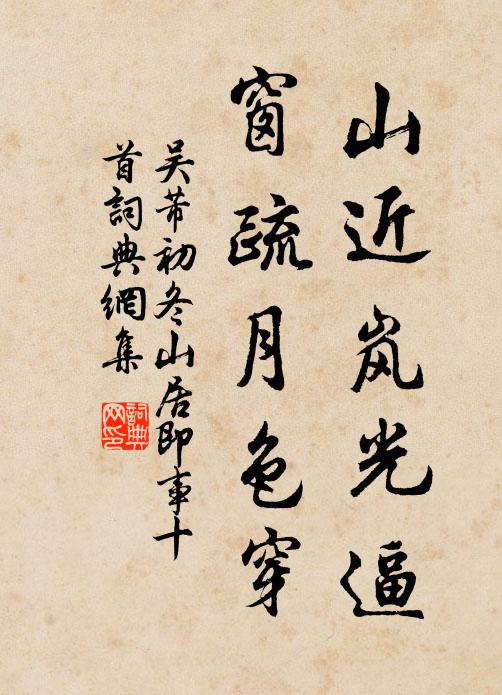 山近岚光逼
窗疏月色穿
吴芾初冬山居即事十
首詞典網集
詞典
网印